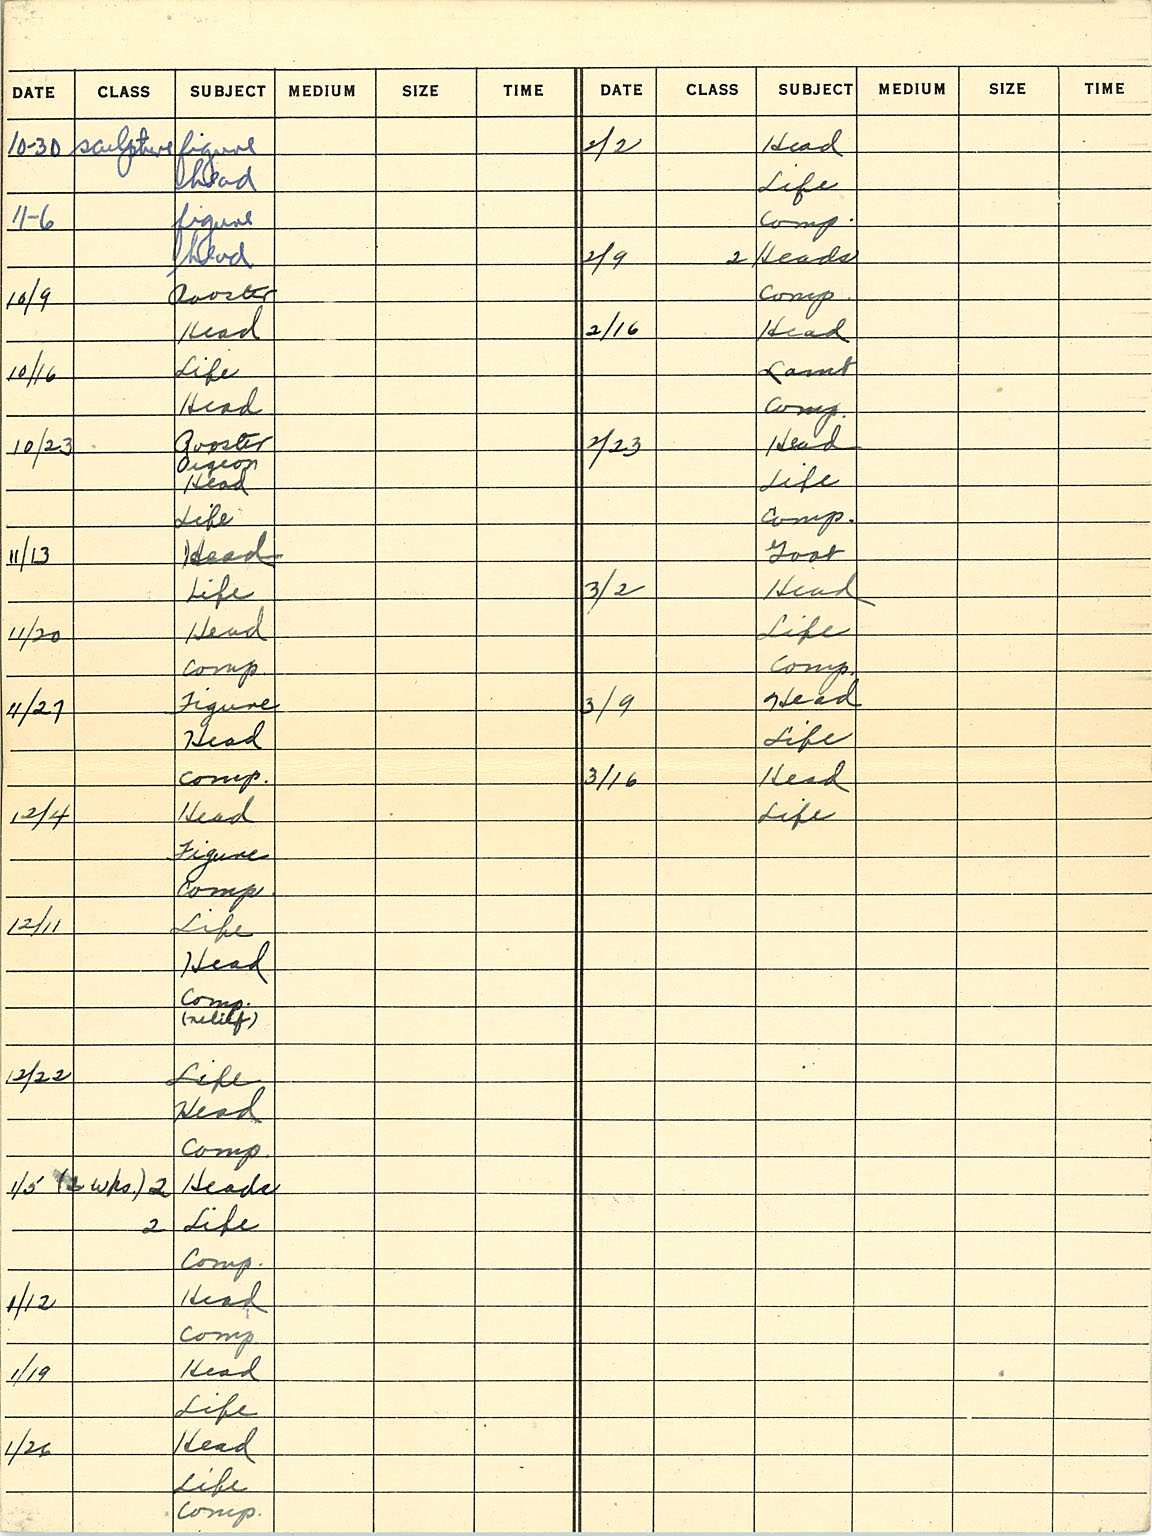 DATE CLASS SUBJECT MEDIUM SIZE TIME
10-30 sculpture figure
head
11-6 figure
head
10/9 Rooster
Head
10/16 Life
Head
10/23 Rooster
Pigeon
Head
Life
11/13 Head
Life
11/20 Head
Comp.
11/27 Figure
Head
Comp.
12/4 Head
Figure
Comp.
12/11 Life
Head
Comp.
(relief)
12/22 Life
Head
Comp.
1/5 (2 wks.) 2 Heads
2 Life
Comp.
1/12 Head
Comp.
1/19 Head
Life
1/26 Head
Life
Comp.
DATE CLASS SUBJECT MEDIUM SIZE TIME
2/2 Head
Life
Comp.
2/9 2 Heads
Comp.
2/16 Head
Comp.
2/23 Head
Life
Comp.
Goat
3/2 Head
Life
Comp.
3/9 Head
Life
3/16 Head
Life